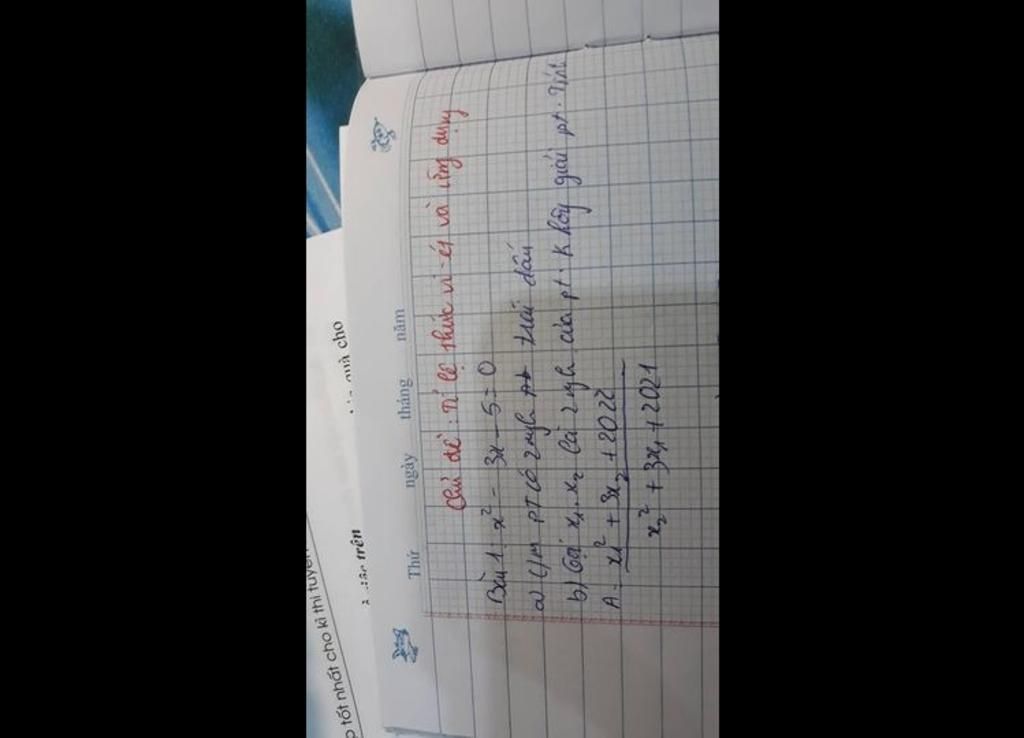 p tốt nhất cho kì thi tuyển
trên
quà cho
Thứ ngày tháng năm
Chủ đề: Tỉ lệ thức vi-ét và ứng dụng
Bài 1: x² - 3x - 5 = 0
a) C/m PT có 2 ngh trái dấu
b) Gọi x₁, x₂ là 2 ngh của pt. K hãy giải pt. Tính
A = x₁² + 3x₂ + 2022
x₂² + 3x₁ + 2021